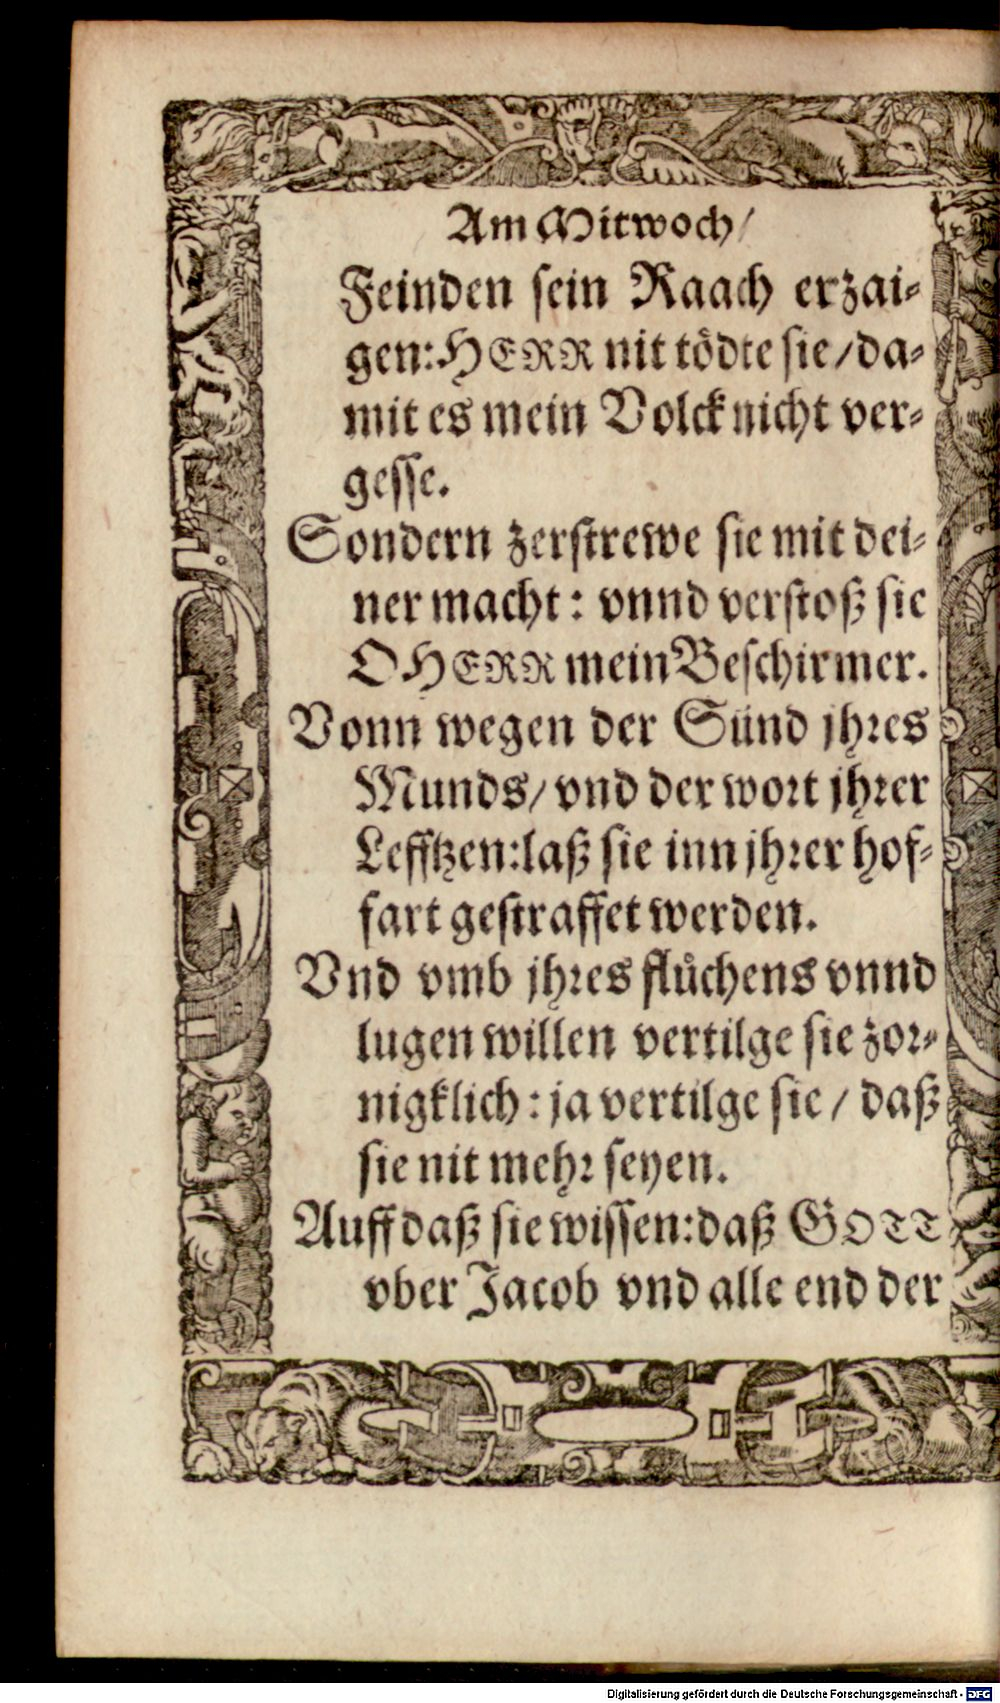 Am Mitwoch/
Feinden sein Raach erzai-
gen: HERR nit tödte sie/da-
mit es mein Volck nicht ver-
gesse.
Sondern zerstrewe sie mit dei-
ner macht: vnnd verstoß sie
O HERR mein Beschirmer.
Vonn wegen der Sünd jhres
Munds/ vnd der wort jhrer
Lefftzen: laß sie inn jhrer hof-
fart gestraffet werden.
Vnd vmb jhres flůchens vnnd
lugen willen vertilge sie zor-
nigklich: ja vertilge sie / daß
sie nit mehr seyen.
Auff daß sie wissen: daß GOTT
vber Jacob vnd alle end der
Digitalisierung gefördert durch die Deutsche Forschungsgemeinschaft - DFG